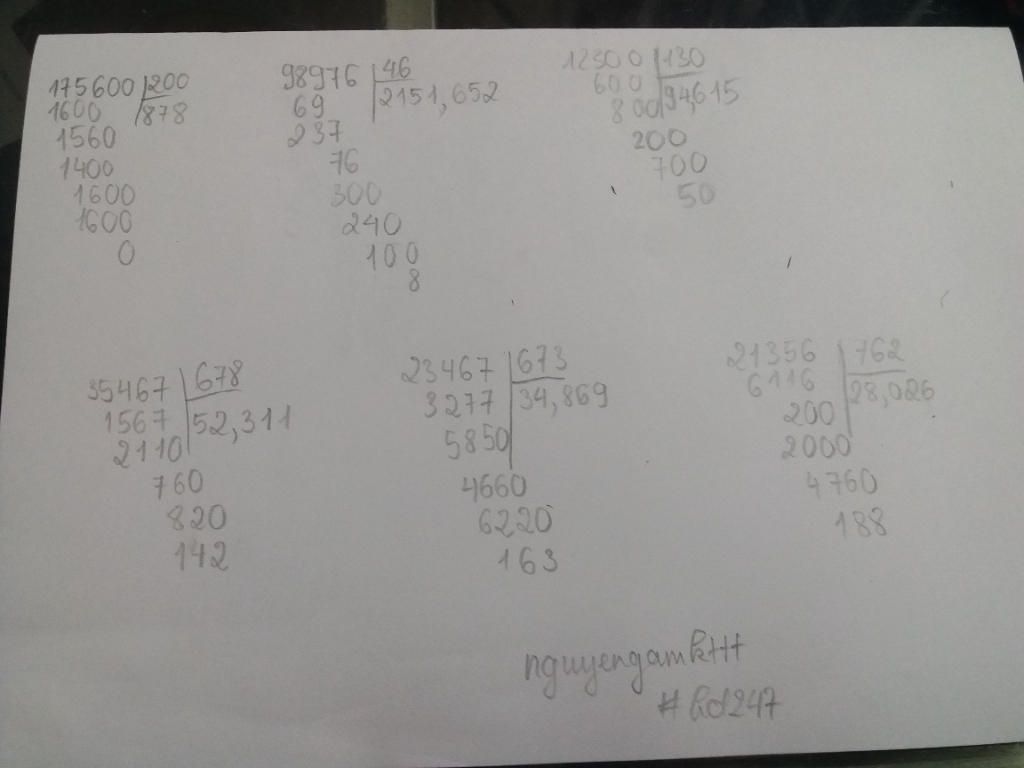 175600 200
1600 878
1560
1400
1600
1600
0
98976 46
69 2151,652
237
76
300
240
100
8
12300 130
600 94,615
800
200
700
50
35467 678
1567 52,311
2110
760
820
142
23467 673
3277 34,869
5850
4660
6220
163
21356 762
6116 28,026
200
2000
4760
188
nguyengamkttt
#hd247